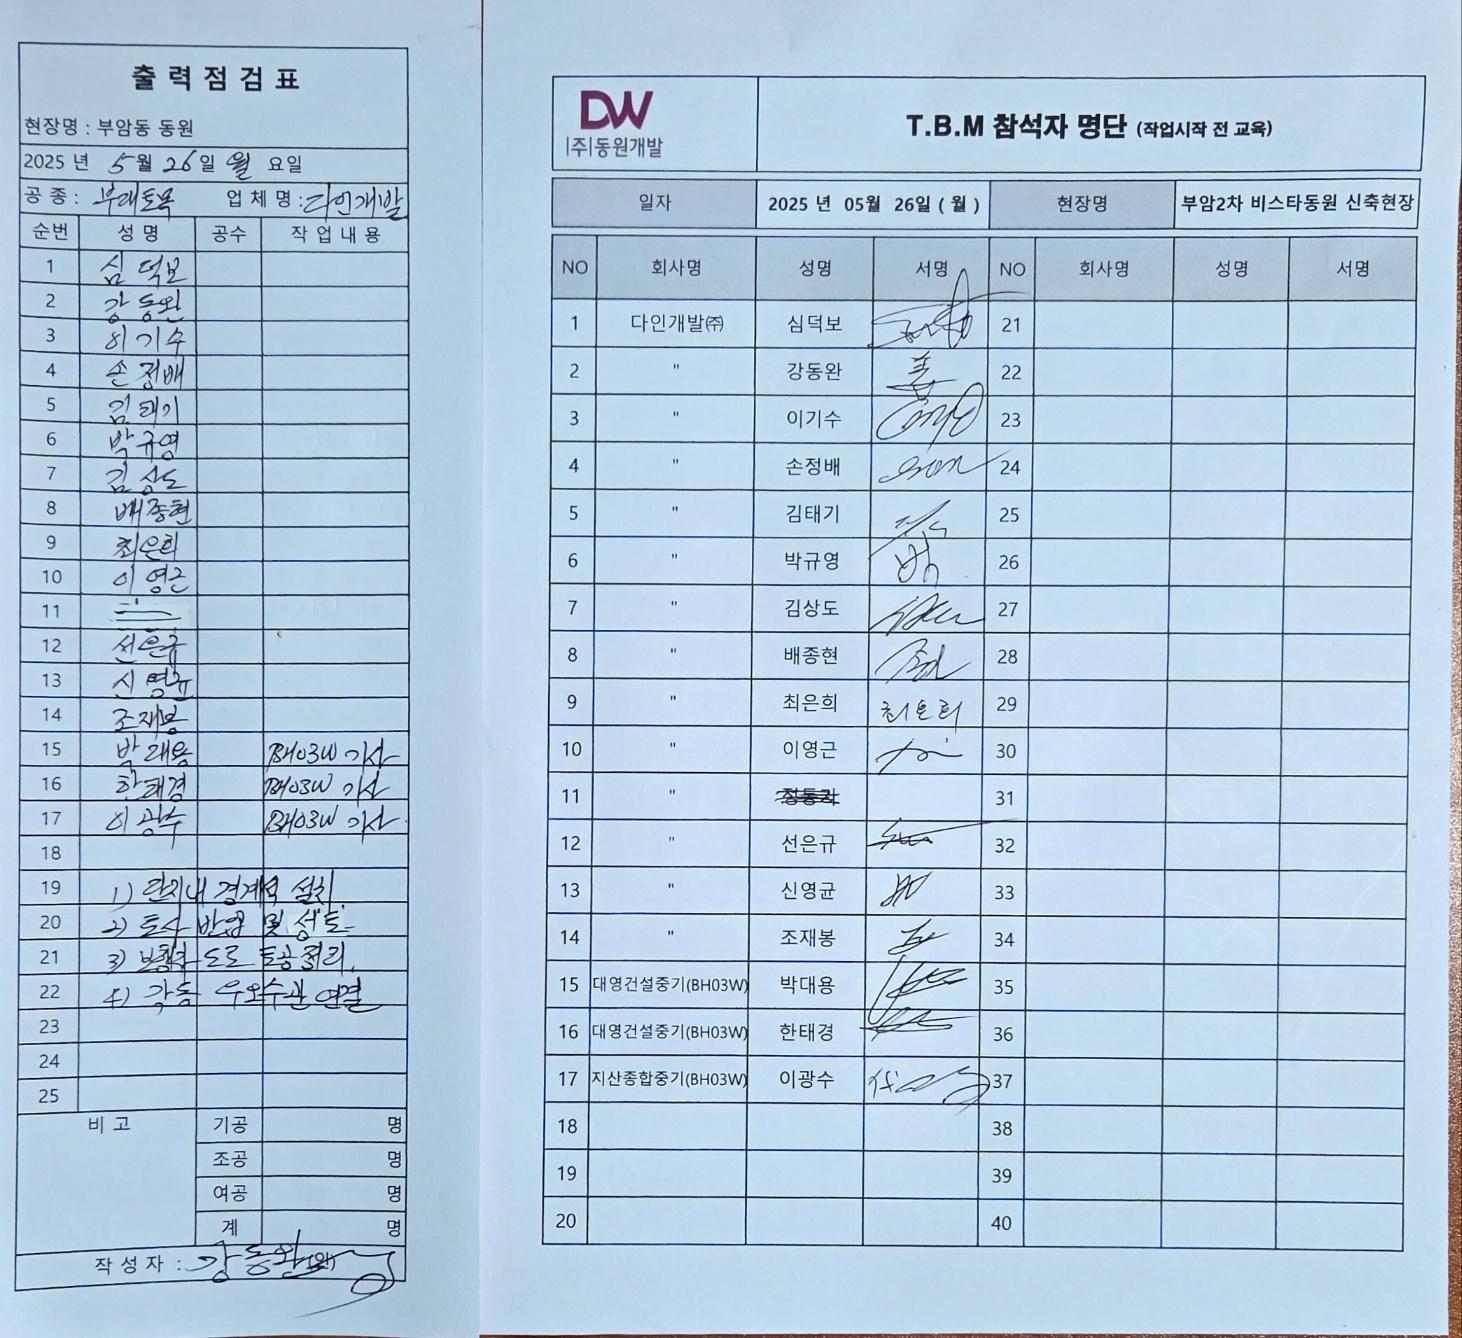 출력점검표
현장명 : 부암동 동원
2025 년 5월 26일 월 요일
공종 : 부대토목 업체명 : 다인개발
순번 성명 공수 작업내용
1 심덕보
2 강동완
3 이기수
4 손정배
5 김태기
6 박규영
7 김상도
8 배종현
9 최은희
10 이영근
11
12 선은규
13 신영균
14 조재봉
15 박대용 BH03W 기사
16 한태경 BH03W 기사
17 이광수 BH03W 기사
18
19 1) 단지내 경계석 설치
20 2) 토사 반입 및 성토
21 3) 도로 토공 정리
22 4) 각동 우오수관 연결
23
24
25
비고 기공 명
조공 명
여공 명
계 명
작성자 : 강동완
DW
|주|동원개발
T.B.M 참석자 명단 (작업시작 전 교육)
일자 2025 년 05월 26일 ( 월 ) 현장명 부암2차 비스타동원 신축현장
NO 회사명 성명 서명 NO 회사명 성명 서명
1 다인개발㈜ 심덕보 21
2 " 강동완 22
3 " 이기수 23
4 " 손정배 son 24
5 " 김태기 25
6 " 박규영 26
7 " 김상도 27
8 " 배종현 28
9 " 최은희 최은희 29
10 " 이영근 30
11 " 31
12 " 선은규 32
13 " 신영균 33
14 " 조재봉 34
15 대영건설중기(BH03W) 박대용 35
16 대영건설중기(BH03W) 한태경 36
17 지산종합중기(BH03W) 이광수 37
18 38
19 39
20 40